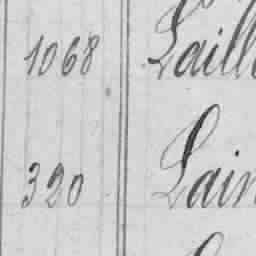 1068 Laill
320 Lain